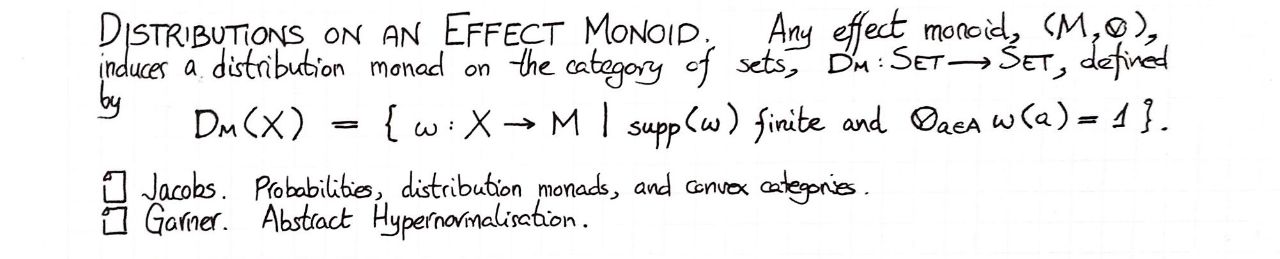 DISTRIBUTIONS ON AN EFFECT MONOID. Any effect monoid, (M,⊘),
induces a distribution monad on the category of sets, DM : SET → SET, defined
by
DM(X) = { ω : X → M | supp(ω) finite and ⊘a∈A ω(a) = 1 }.
Jacobs. Probabilities, distribution monads, and convex categories.
Garner. Abstract Hypernormalisation.